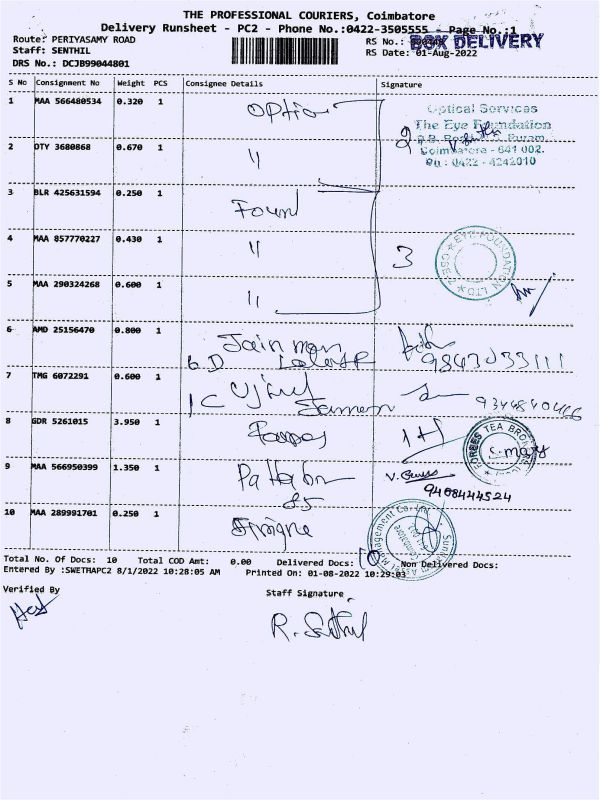 THE PROFESSIONAL COURIERS, Coimbatore
Delivery Runsheet - PC2 - Phone No.:0422-3505555 - Page No.:1
Route: PERIYASAMY ROAD
RS No.:
BOX DELIVERY
Staff: SENTHIL
RS Date: 01-Aug-2022
DRS No.: DCJB99044801
S No Consignment No Weight PCS Consignee Details Signature
1 MAA 566480534 0.320 1
Optical Services
The Eye Foundation
Coimbatore - 641 002.
Ph : 0422 - 4242010
2 OTY 3680868 0.670 1 "
2
3 BLR 425631594 0.250 1 Found
4 MAA 857770227 0.430 1 " 3
EYE FOUNDATION LTD
5 MAA 290324268 0.600 1 "
6 AMD 25156470 0.800 1 Jain
6 D 9843033111
7 TMG 6072291 0.600 1
1 C
8 GDR 5261015 3.950 1
FORBES TEA BROKERS
9 MAA 566950399 1.350 1
9408444524
10 MAA 289991701 0.250 1
Sundaram Asset Management Co. Ltd
Total No. Of Docs: 10 Total COD Amt: 0.00 Delivered Docs: 10 Non Delivered Docs:
Entered By :SWETHAPC2 8/1/2022 10:28:05 AM Printed On: 01-08-2022 10:29:03
Verified By Staff Signature
R. Senthil